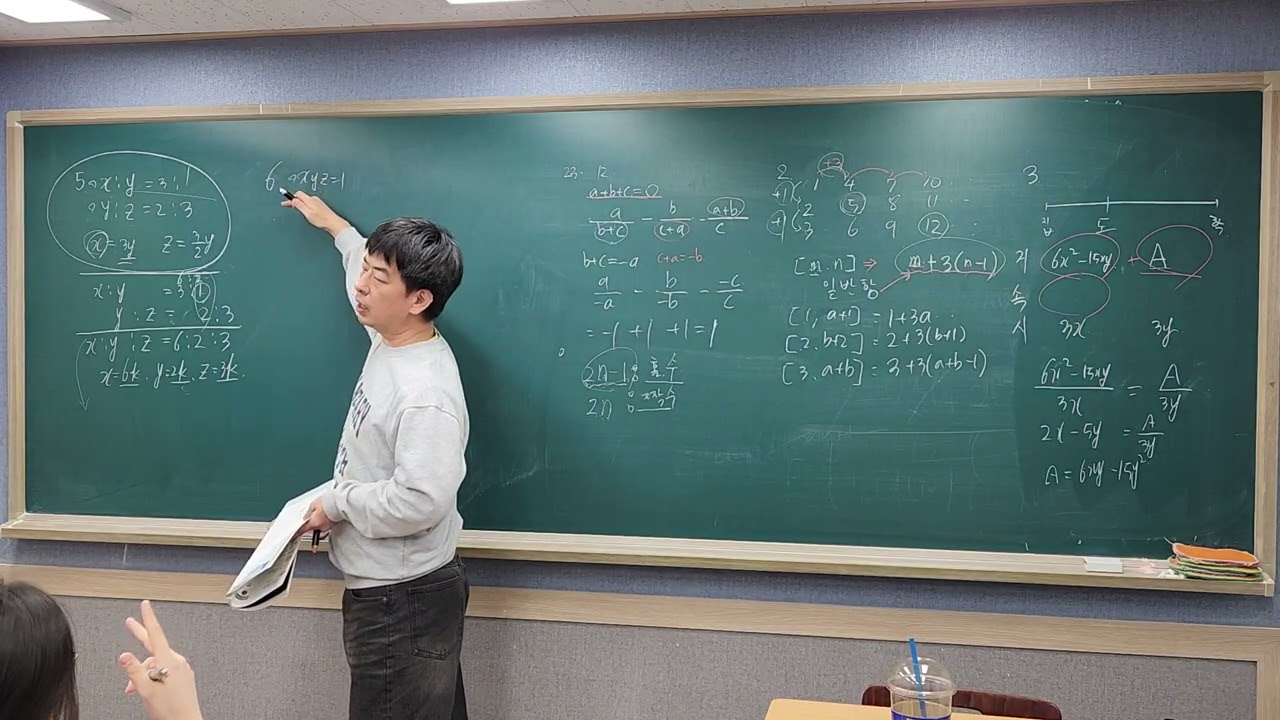 5 x:y = 3:1
y:z = 2:3
x = 3y z = 3/2 y
x:y = 6:2
3:1
y:z = 2:3
x:y:z = 6:2:3
x=6k, y=2k, z=3k
6 xyz=1
23. 12.
a+b+c=0
a/(b+c) - b/(c+a) - (a+b)/c
b+c=-a c+a=-b
a/-a - b/-b - -c/c
= -1 +1 +1 = 1
2n-1: 홀수
2n: 짝수
2 +3
+1 1 4 7 10 ...
2 5 8 11 ...
+1 3 6 9 12 :
[m.n] → m+3(n-1)
일반항
[1, a+1] = 1+3a
[2, b+2] = 2+3(b+1)
[3, a+b] = 3+3(a+b-1)
3
집 5 학
거 6x²-15xy + A
속
시 3x 3y
(6x²-15xy)/3x = A/3y
2x-5y = A/3y
A = 6xy-15y²